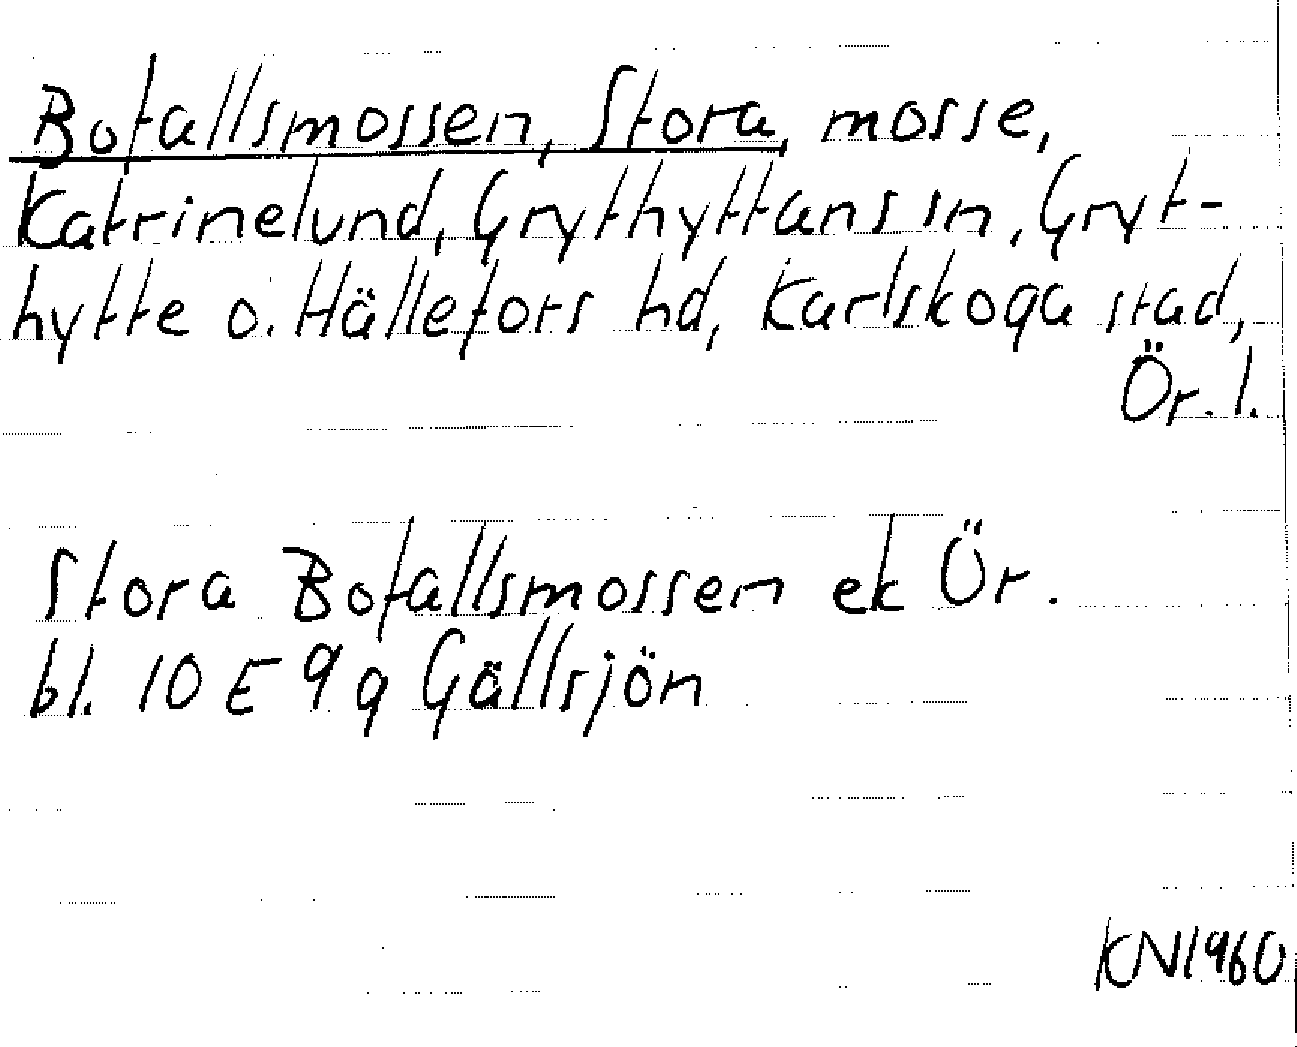 Bofallsmossen, Stora, mosse,
Katrinelund, Grythyttans sn, Gryt-
hytte o. Hällefors hd, Karlskoga stad,
Ör. l.
Stora Bofallsmossen ek Ör.
bl. 10 E 9 g Gällsjön
KN1960